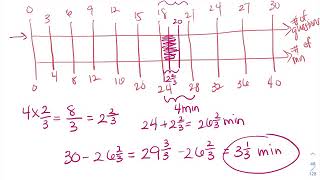 0 3 6 9 12 15 18 21 24 27 30
20
# of questions
# of min
0 4 8 12 16 20 24 28 32 36 40
2⅔
4 min
4 x 2/3 = 8/3 = 2 2/3
24 + 2 2/3 = 26 2/3 min
30 - 26 2/3 = 29 3/3 - 26 2/3 = 3 1/3 min